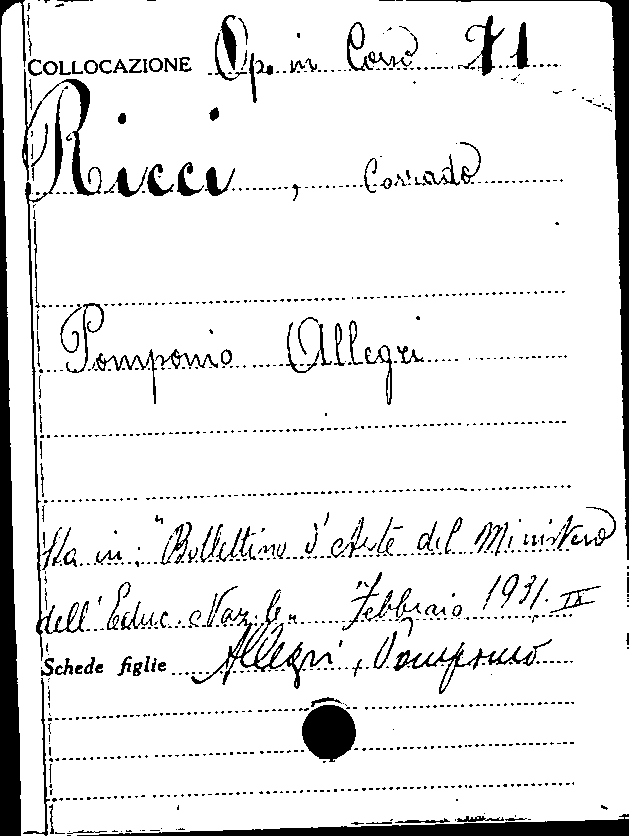 COLLOCAZIONE Op. in Corso 71
Ricci, Corrado
Pomponio Allegri
Sta in: "Bollettino d'Arte del Ministero
dell'Educ. Naz.le" Febbraio 1931. IX
Schede figlie Allegri, Pomponio